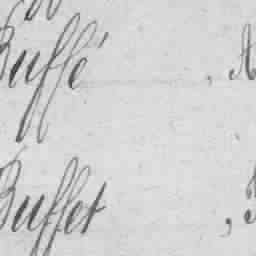 Buffé
Buffet